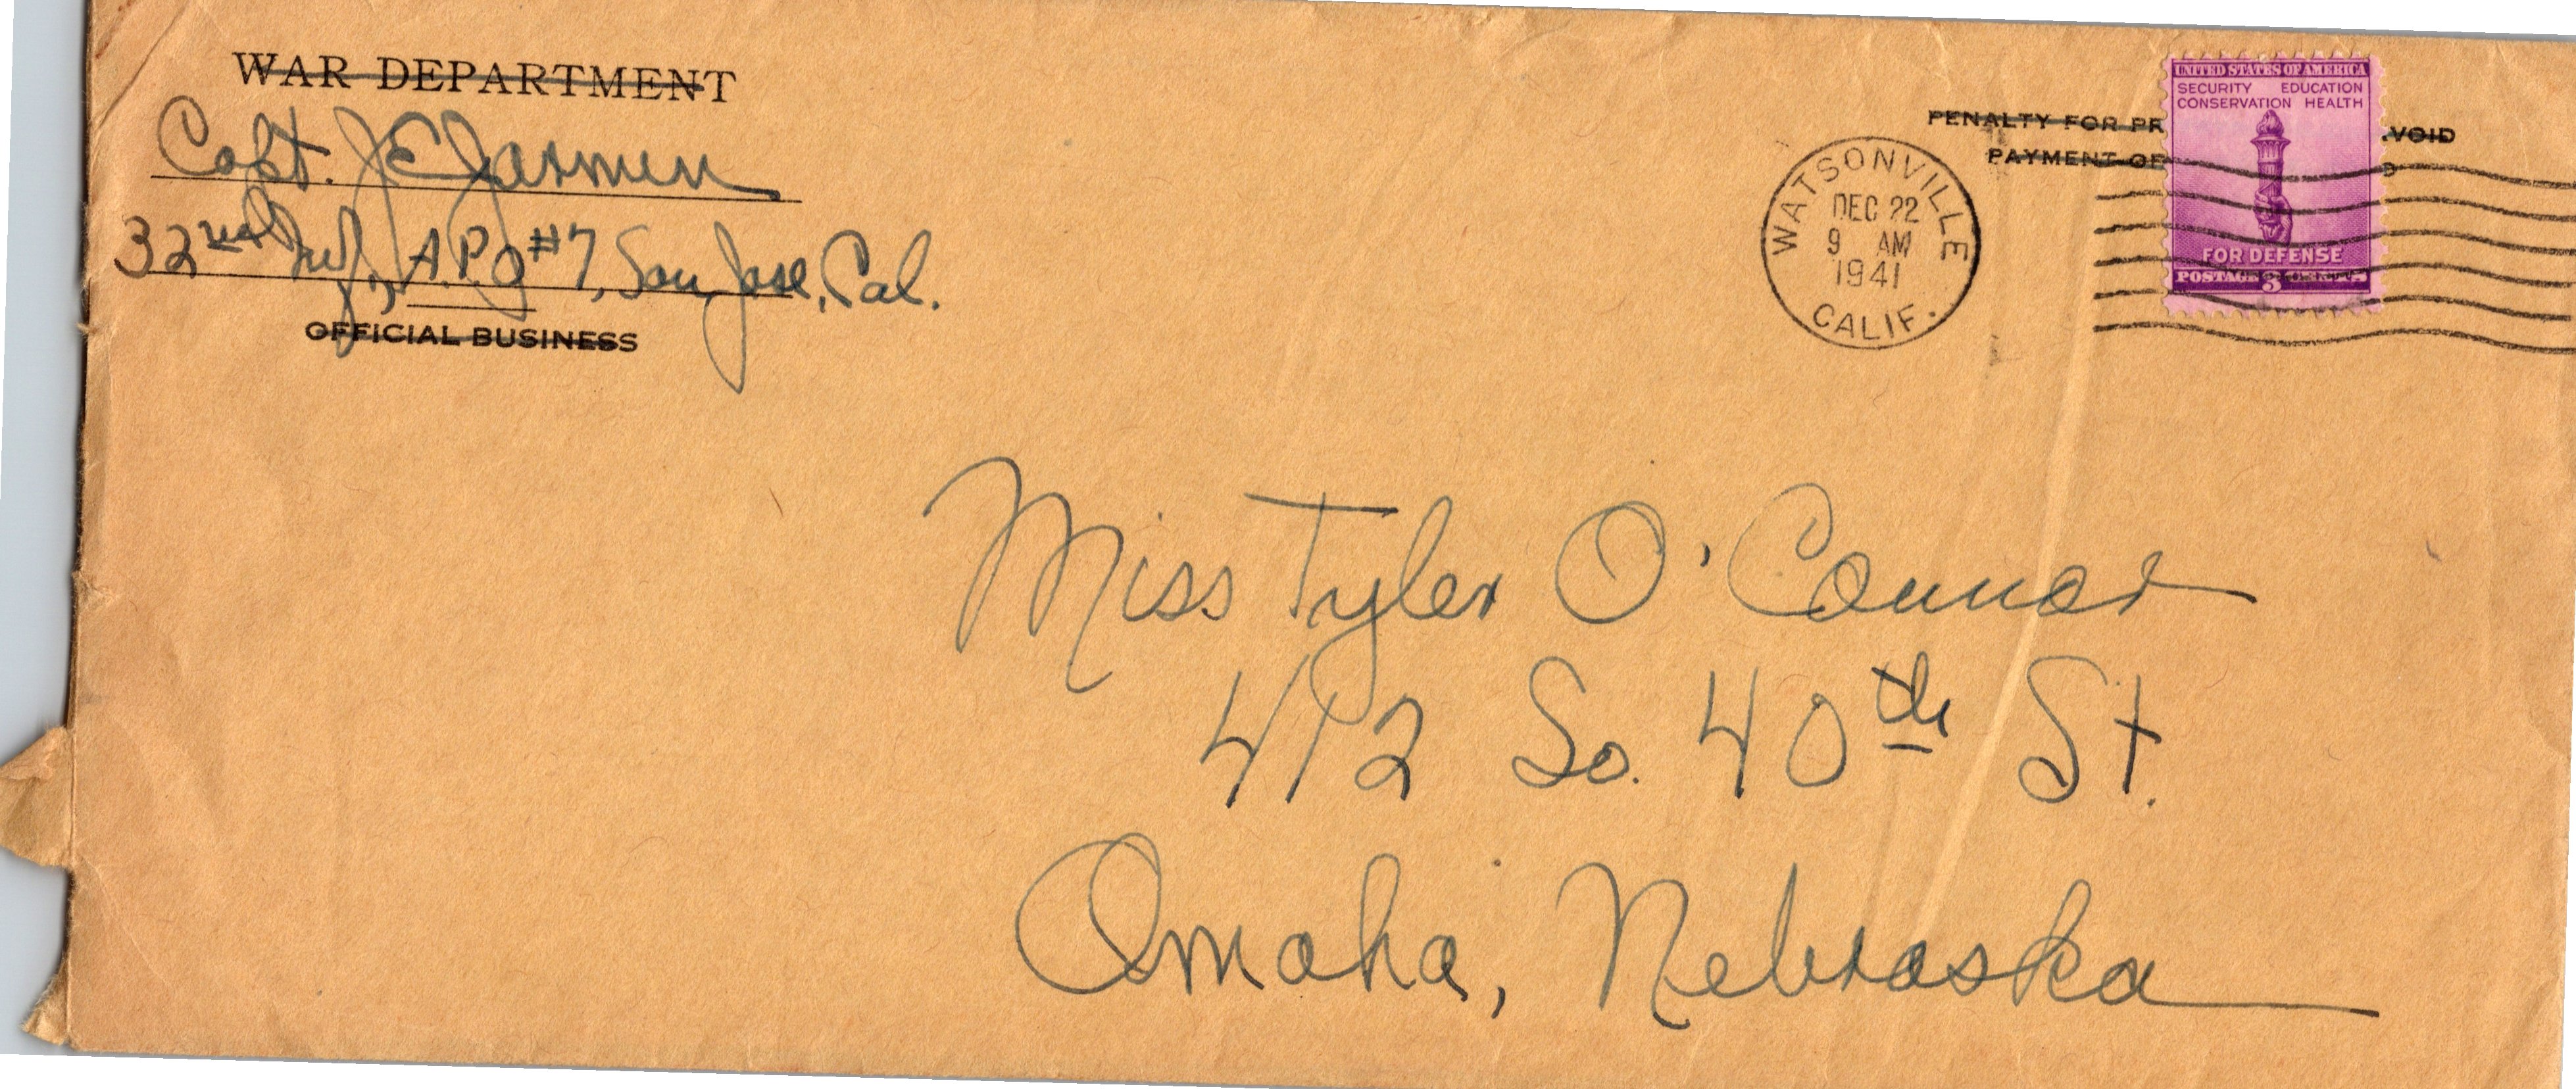 WAR DEPARTMENT
Capt. J E Jarmin
32nd Inf., A.P.O #7, San Jose, Cal.
OFFICIAL BUSINESS
PENALTY FOR PR VOID
PAYMENT OF
WATSONVILLE
DEC 22
9 AM
1941
CALIF.
UNITED STATES OF AMERICA
SECURITY EDUCATION
CONSERVATION HEALTH
FOR DEFENSE
POSTAGE 3
Miss Tyler O'Connor
412 So. 40th St.
Omaha, Nebraska